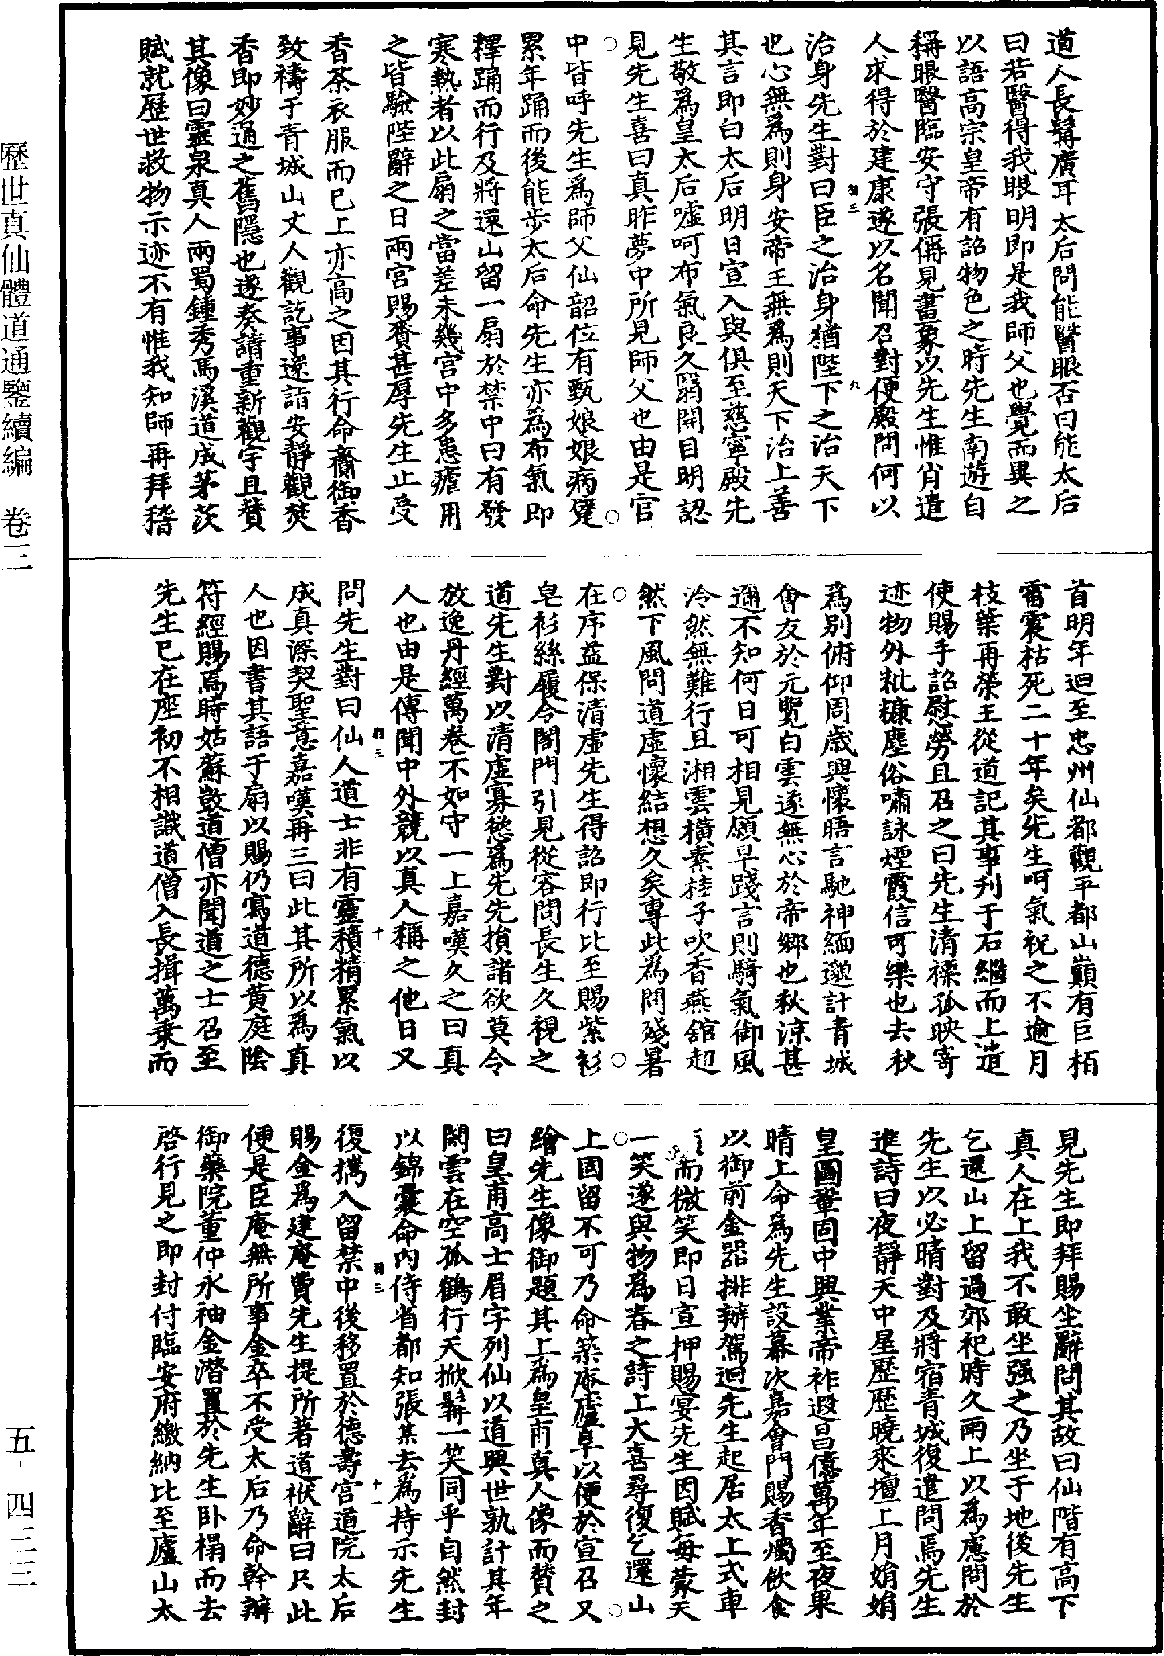 歷世真仙體道通鑒續編　卷三
五-四三三
道人長髯廣耳太后問能醫眼否曰能太后
曰若醫得我眼明即是我師父也覺而異之
以語高宗皇帝有詔物色之時先生南遊自
稱眼醫臨安守張偁見畫象以先生惟肖遣
人求得於建康遂以名聞召對便殿問何以
治身先生對曰臣之治身猶陛下之治天下
也心無為則身安帝王無為則天下治上善
其言即白太后明日宣入與俱至慈寧殿先
生敬為皇太后噓呵布氣良久翳開目明認
見先生喜曰真昨夢中所見師父也由是宮
中皆呼先生為師父仙韶位有甄娘娘病躄
累年踊而後能步太后命先生亦為布氣即
釋踊而行及將還山留一扇於禁中曰有發
寒熱者以此扇之當差未幾宮中多患瘧用
之皆驗陛辭之日兩宮賜賚甚厚先生止受
香茶衣服而已上亦高之因其行命齎御香
致禱于青城山丈人觀訖事還詣安靜觀焚
香即妙通之舊隱也遂奏請重新觀宇且贊
其像曰靈泉真人兩蜀鍾秀馬溪道成茅茨
賦就歷世救物示迹不有惟我知師再拜稽
首明年迴至忠州仙都觀平都山巔有巨栢
雷震枯死二十年矣先生呵氣祝之不逾月
枝葉再榮王從道記其事刊于石繼而上遣
使賜手詔慰勞且召之曰先生清標孤映寄
迹物外粃糠塵俗嘯詠煙霞信可樂也去秋
為別俯仰周歲興懷晤言馳神緬邈計青城
會友於元覽白雲遂無心於帝鄉也秋涼甚
邇不知何日可相見願早踐言則騎氣御風
泠然無難行且湘雲橫素桂子吹香燕舘超
然下風問道虛懷結想久矣專此為問殘暑
在序益保清虛先生得詔即行比至賜紫衫
皂衫絲履令閤門引見從容問長生久視之
道先生對以清虛寡慾為先先損諸欲莫令
放逸丹經萬卷不如守一上嘉嘆久之曰真
人也由是傳聞中外競以真人稱之他日又
問先生對曰仙人道士非有靈積精累氣以
成真深契聖意嘉嘆再三曰此其所以為真
人也因書其語于扇以賜仍寫道德黃庭陰
符經賜焉時姑蘇㪍道僧亦聞道之士召至
先生已在座初不相識道僧入長揖萬乘而
見先生即拜賜坐辭問其故曰仙階有高下
真人在上我不敢坐强之乃坐于地後先生
乞還山上留過郊祀時久雨上以為慮問於
先生以必晴對及將宿青城復遣問焉先生
進詩曰夜靜天中星歷歷曉來壇上月娟娟
皇圖鞏固中興業帝祚遐昌億萬年至夜果
晴上命為先生設幕次嘉會門賜香燭飲食
以御前金器排辦駕迴先生起居太上式車
而微笑即日宣押賜宴先生因賦每蒙天
一笑遂與物為春之詩上大喜尋復乞還山
上固留不可乃命築庵廬阜以便於宣召又
繪先生像御題其上為皇甫真人像而贊之
曰皇甫高士眉宇列仙以道興世孰計其年
閑雲在空孤鶴行天掀髯一笑同乎自然封
以錦囊命內侍省都知張某去為持示先生
復攜入留禁中後移置於德壽宮道院太后
賜金為建庵費先生提所著道袱辭曰只此
便是臣庵無所事金卒不受太后乃命幹辦
御藥院董仲永袖金潛置於先生卧榻而去
啓行見之即封付臨安府繳納比至廬山太